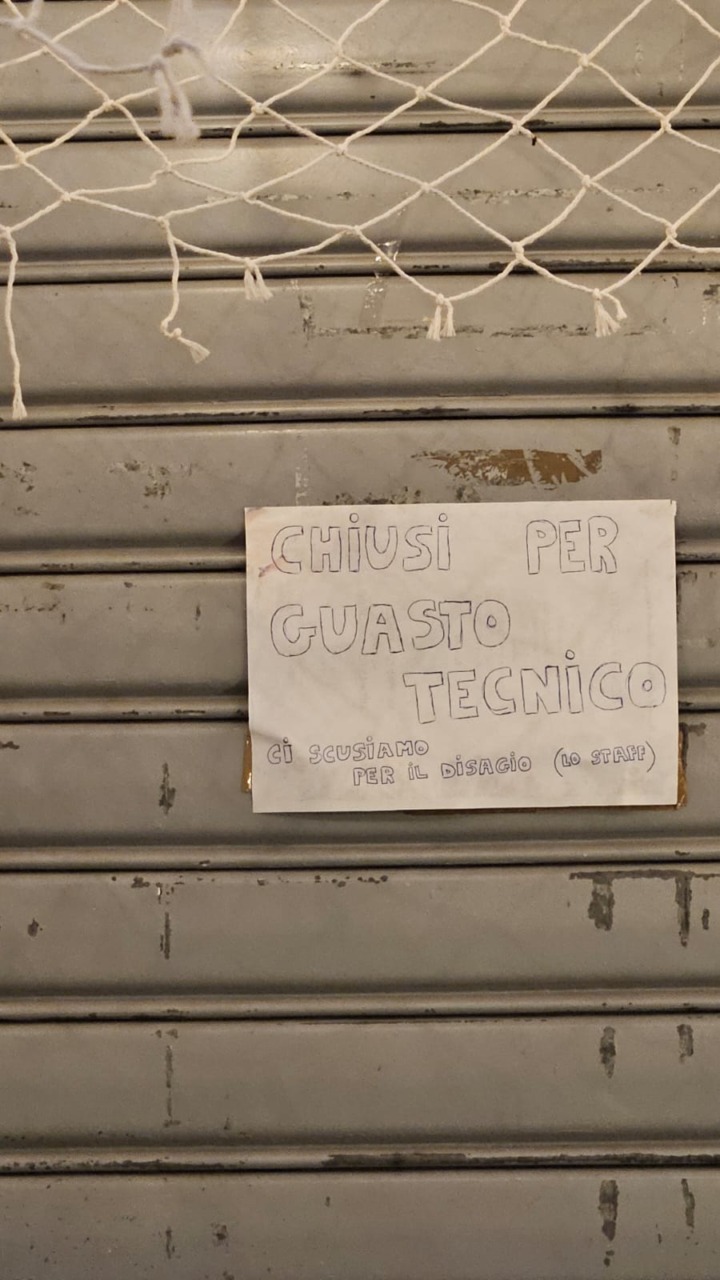 CHiUSi PER
GUASTO
TECNiCO
Ci SCUSiAMO
PER iL DiSAGiO (LO STAFF)